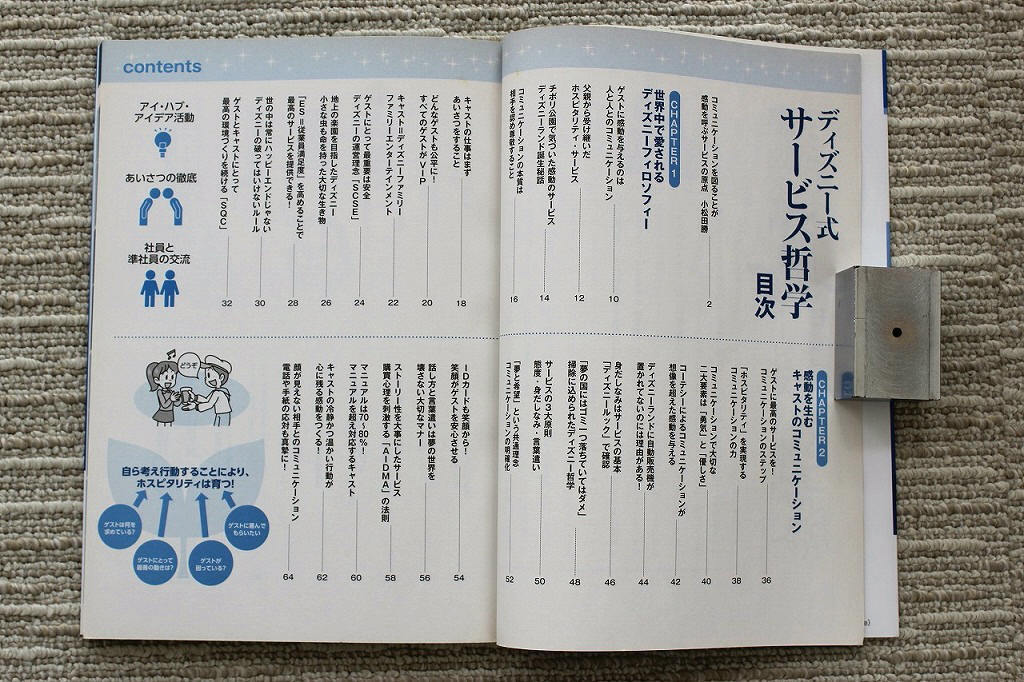 ディズニー式
サービス哲学
目次
コミュニケーションを図ることが
感動を呼ぶサービスの原点　小松田勝
2
CHAPTER 1
世界中で愛される
ディズニーフィロソフィー
ゲストに感動を与えるのは
人と人とのコミュニケーション
10
父親から受け継いだ
ホスピタリティ・サービス
12
チボリ公園で気づいた感動のサービス
ディズニーランド誕生秘話
14
コミュニケーションの本質は
相手を認め尊敬すること
16
CHAPTER 2
感動を生む
キャストのコミュニケーション
ゲストに最高のサービスを！
コミュニケーションのステップ
36
「ホスピタリティ」を実現する
コミュニケーションの力
38
コミュニケーションで大切な
二大要素は「勇気」と「優しさ」
40
コーテシーによるコミュニケーションが
想像を超えた感動を与える
42
ディズニーランドに自動販売機が
置かれてないのには理由がある！
44
身だしなみはサービスの基本
「ディズニールック」で確認
46
「夢の国にはゴミ一つ落ちていてはダメ」
掃除に込められたディズニー哲学
48
サービスの3大原則
態度・身だしなみ・言葉遣い
50
「夢と希望」という共通理念
コミュニケーションの明確化
52
contents
キャストの仕事はまず
あいさつをすること
18
どんなゲストも公平に！
すべてのゲストがVIP
20
キャスト＝ディズニーファミリー
ファミリーエンターテインメント
22
ゲストにとって最重要は安全
ディズニーの運営理念「SCSE」
24
地上の楽園を目指したディズニー
小さな虫も命を持った大切な生き物
26
「ES＝従業員満足度」を高めることで
最高のサービスを提供できる！
28
世の中は常にハッピーエンドじゃない
ディズニーの破ってはいけないルール
30
ゲストとキャストにとって
最高の環境づくりを続ける「SQC」
32
アイ・ハブ・
アイデア活動
あいさつの徹底
社員と
準社員の交流
IDカードも笑顔から！
笑顔がゲストを安心させる
54
話し方と言葉遣いは夢の世界を
壊さない大切なマナー
56
ストーリー性を大事にしたサービス
購買心理を刺激する「AIDMA」の法則
58
マニュアルは70～80％！
マニュアルを超え対応するキャスト
60
キャストの冷静かつ温かい行動が
心に残る感動をつくる！
62
顔が見えない相手とのコミュニケーション
電話や手紙の応対も真摯に！
64
どうぞ
自ら考え行動することにより、
ホスピタリティは育つ！
ゲストは何を
求めている？
ゲストにとって
最善の動きは？
ゲストが
困っている？
ゲストに喜んで
もらいたい